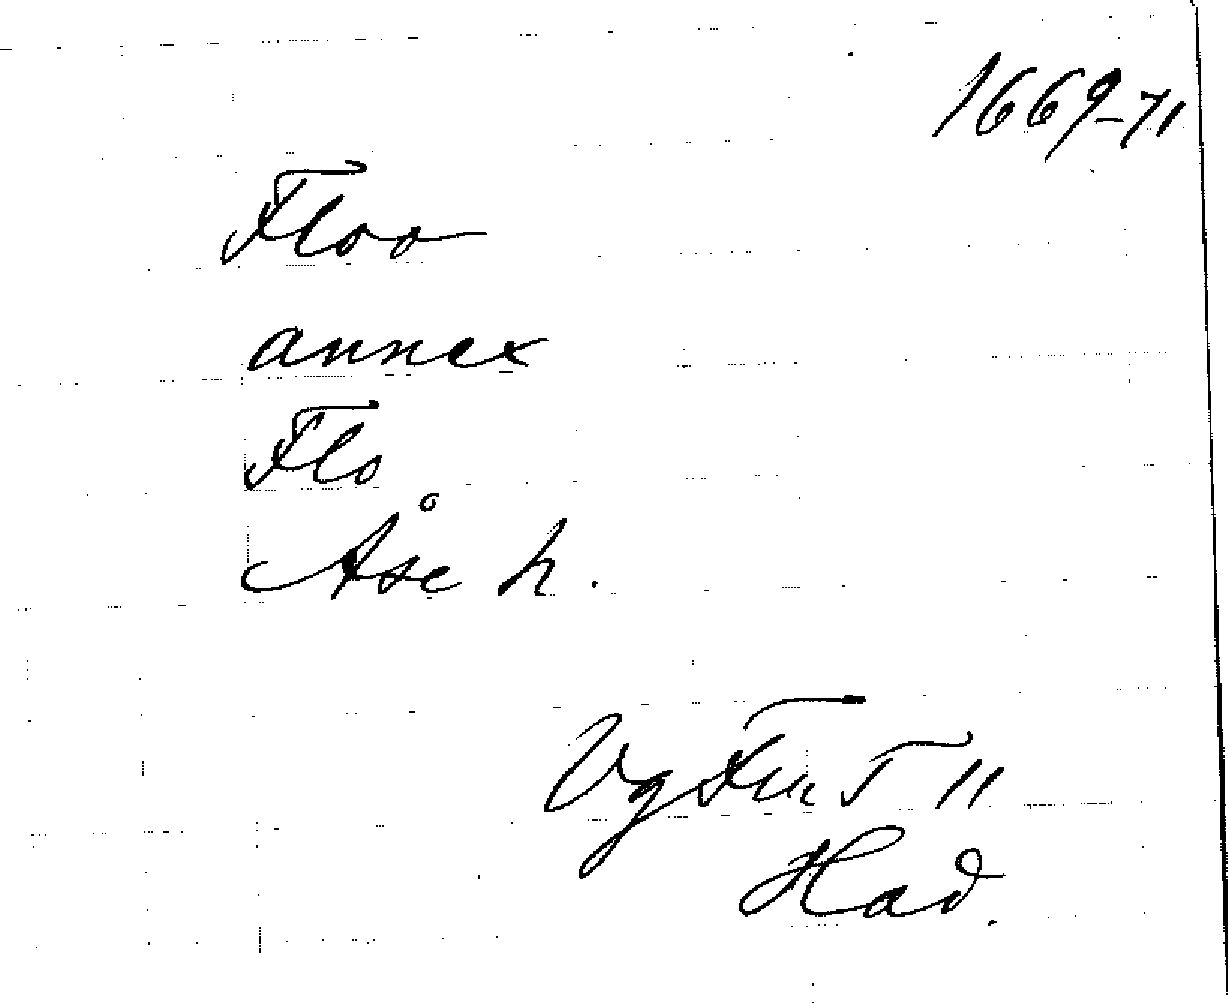 1669-71
Floo
annex
Flo
Åse h.
Vg Fur T 11
Had.